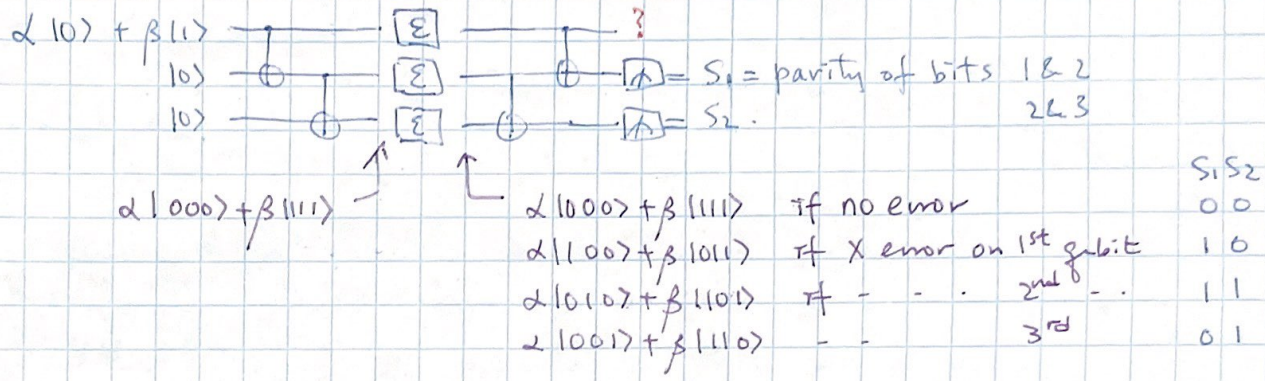 α|0⟩ + β|1⟩ ℰ ?
|0⟩ ℰ = S₁ = parity of bits 1 & 2
|0⟩ ℰ = S₂. 2 & 3
S₁ S₂
α|000⟩+β|111⟩ α|000⟩+β|111⟩ if no error 0 0
α|100⟩+β|011⟩ if X error on 1st qubit 1 0
α|010⟩+β|101⟩ if - - . 2nd - . 1 1
α|001⟩+β|110⟩ - - 3rd 0 1